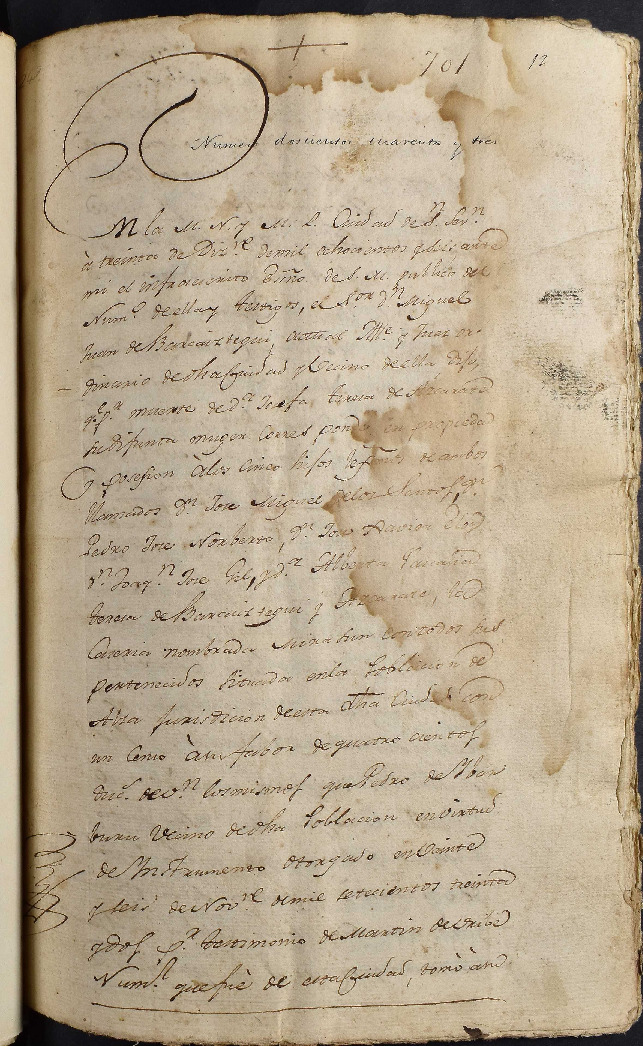 701 12
Numero dosientos quarenta y tres
En la M. N. y M. L. Ciudad de Sn. Sevn.
à treinta de Diz.re de mil ochocientos y dos ante
mi el infraescrito Essno. de S. M. publico del
Num.o de ella y testigos, el S.or Dn. Miguel
Juan de Barcaiztegui, actual Alc.e y Juez or-
dinario de dha Ciudad y Vecino de ella dijo
q.e p.r muerte de D.a Josefa Teresa de
su difunta muger corresponde en propiedad
y posesion à los cinco hijos legmos. de ambos
llamados Dn. Jose Miguel de los Santos, Dn.
Pedro Jose Norberto, Dn. Jose Xavier
Dn. Joaq.n Jose Gil, y D.a Alberta
Teresa de Barcaiztegui y la
Caseria nombrada Mirabun con todos sus
pertenecidos situada en la Poblacion de
Alza jurisdicion de esta dha Ciudad con
un Censo à su fabor de quatro cientos
duc.s de v.n los mismos que Pedro de
vecino de dha Poblacion en virtud
de Instrumento otorgado en veinte
y seis de Nov.re de mil setecientos treinta
y dos p.r testimonio de Martin de Uribe
Num.l que fuè de esta Ciudad, tomò à